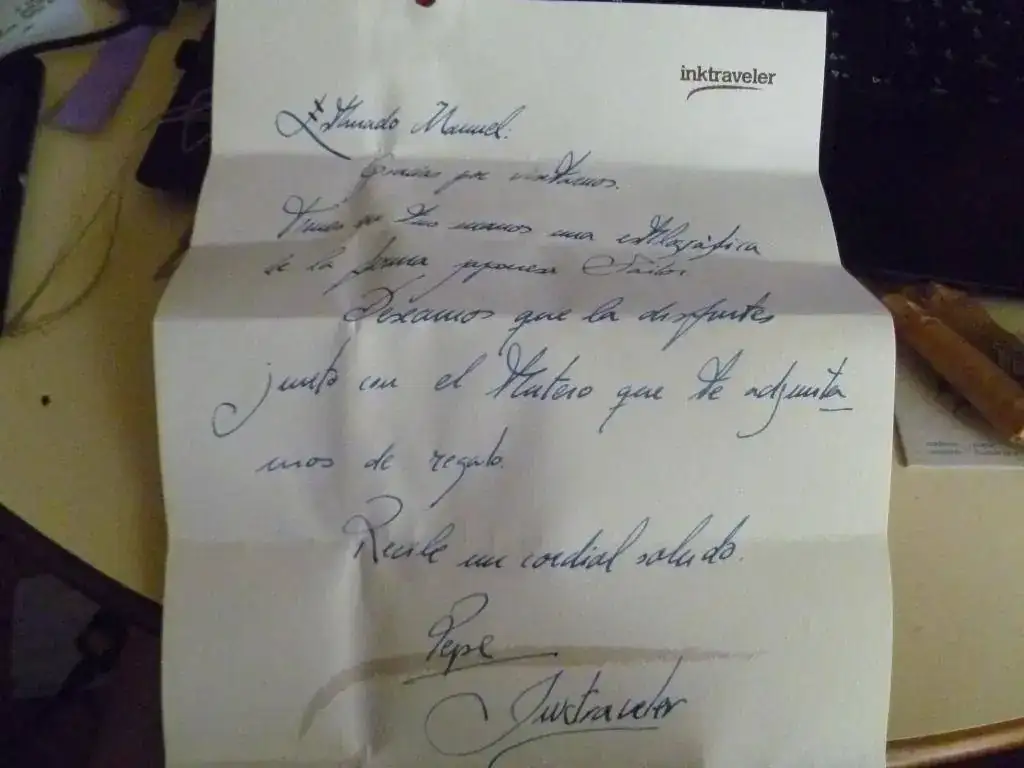 inktraveler
Estimado Manuel:
Gracias por visitarnos.
Tienes en tus manos una estilográfica
de la firma japonesa Sailor
Deseamos que la disfrutes
junto con el tintero que te adjunta
mos de regalo.
Recibe un cordial saludo.
Pepe
Inktraveler